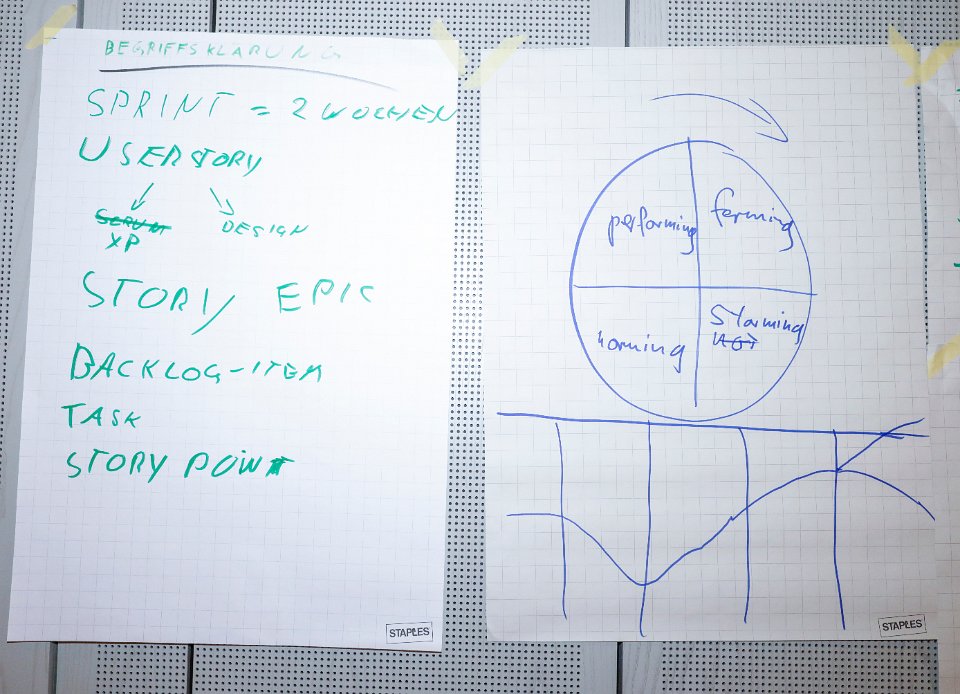 BEGRIFFSKLÄRUNG
SPRINT = 2 WOCHEN
USERSTORY
SCRUM
XP
DESIGN
STORY EPIC
BACKLOG-ITEM
TASK
STORY POINT
STAPLES
performing
forming
norming
storming
STAPLES